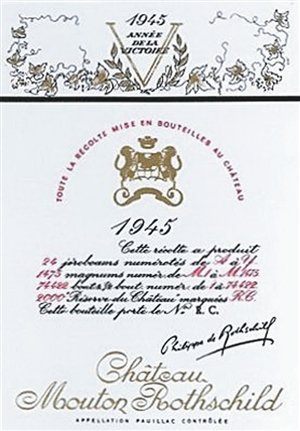 1945
ANNÉE
DE LA
VICTOIRE
V
TOUTE LA RÉCOLTE MISE EN BOUTEILLES AU CHÂTEAU
1945
Cette récolte a produit
24 jéroboams numérotés de A à Y
1475 magnums numér. de M1 à M1475
74422 bout. & ½ bout. numér. de 1 à 74422
2000 "Réserve du Château" marquées R.C.
Cette bouteille porte le No R.C.
Philippe de Rothschild
Château
Mouton Rothschild
APPELLATION PAUILLAC CONTRÔLÉE